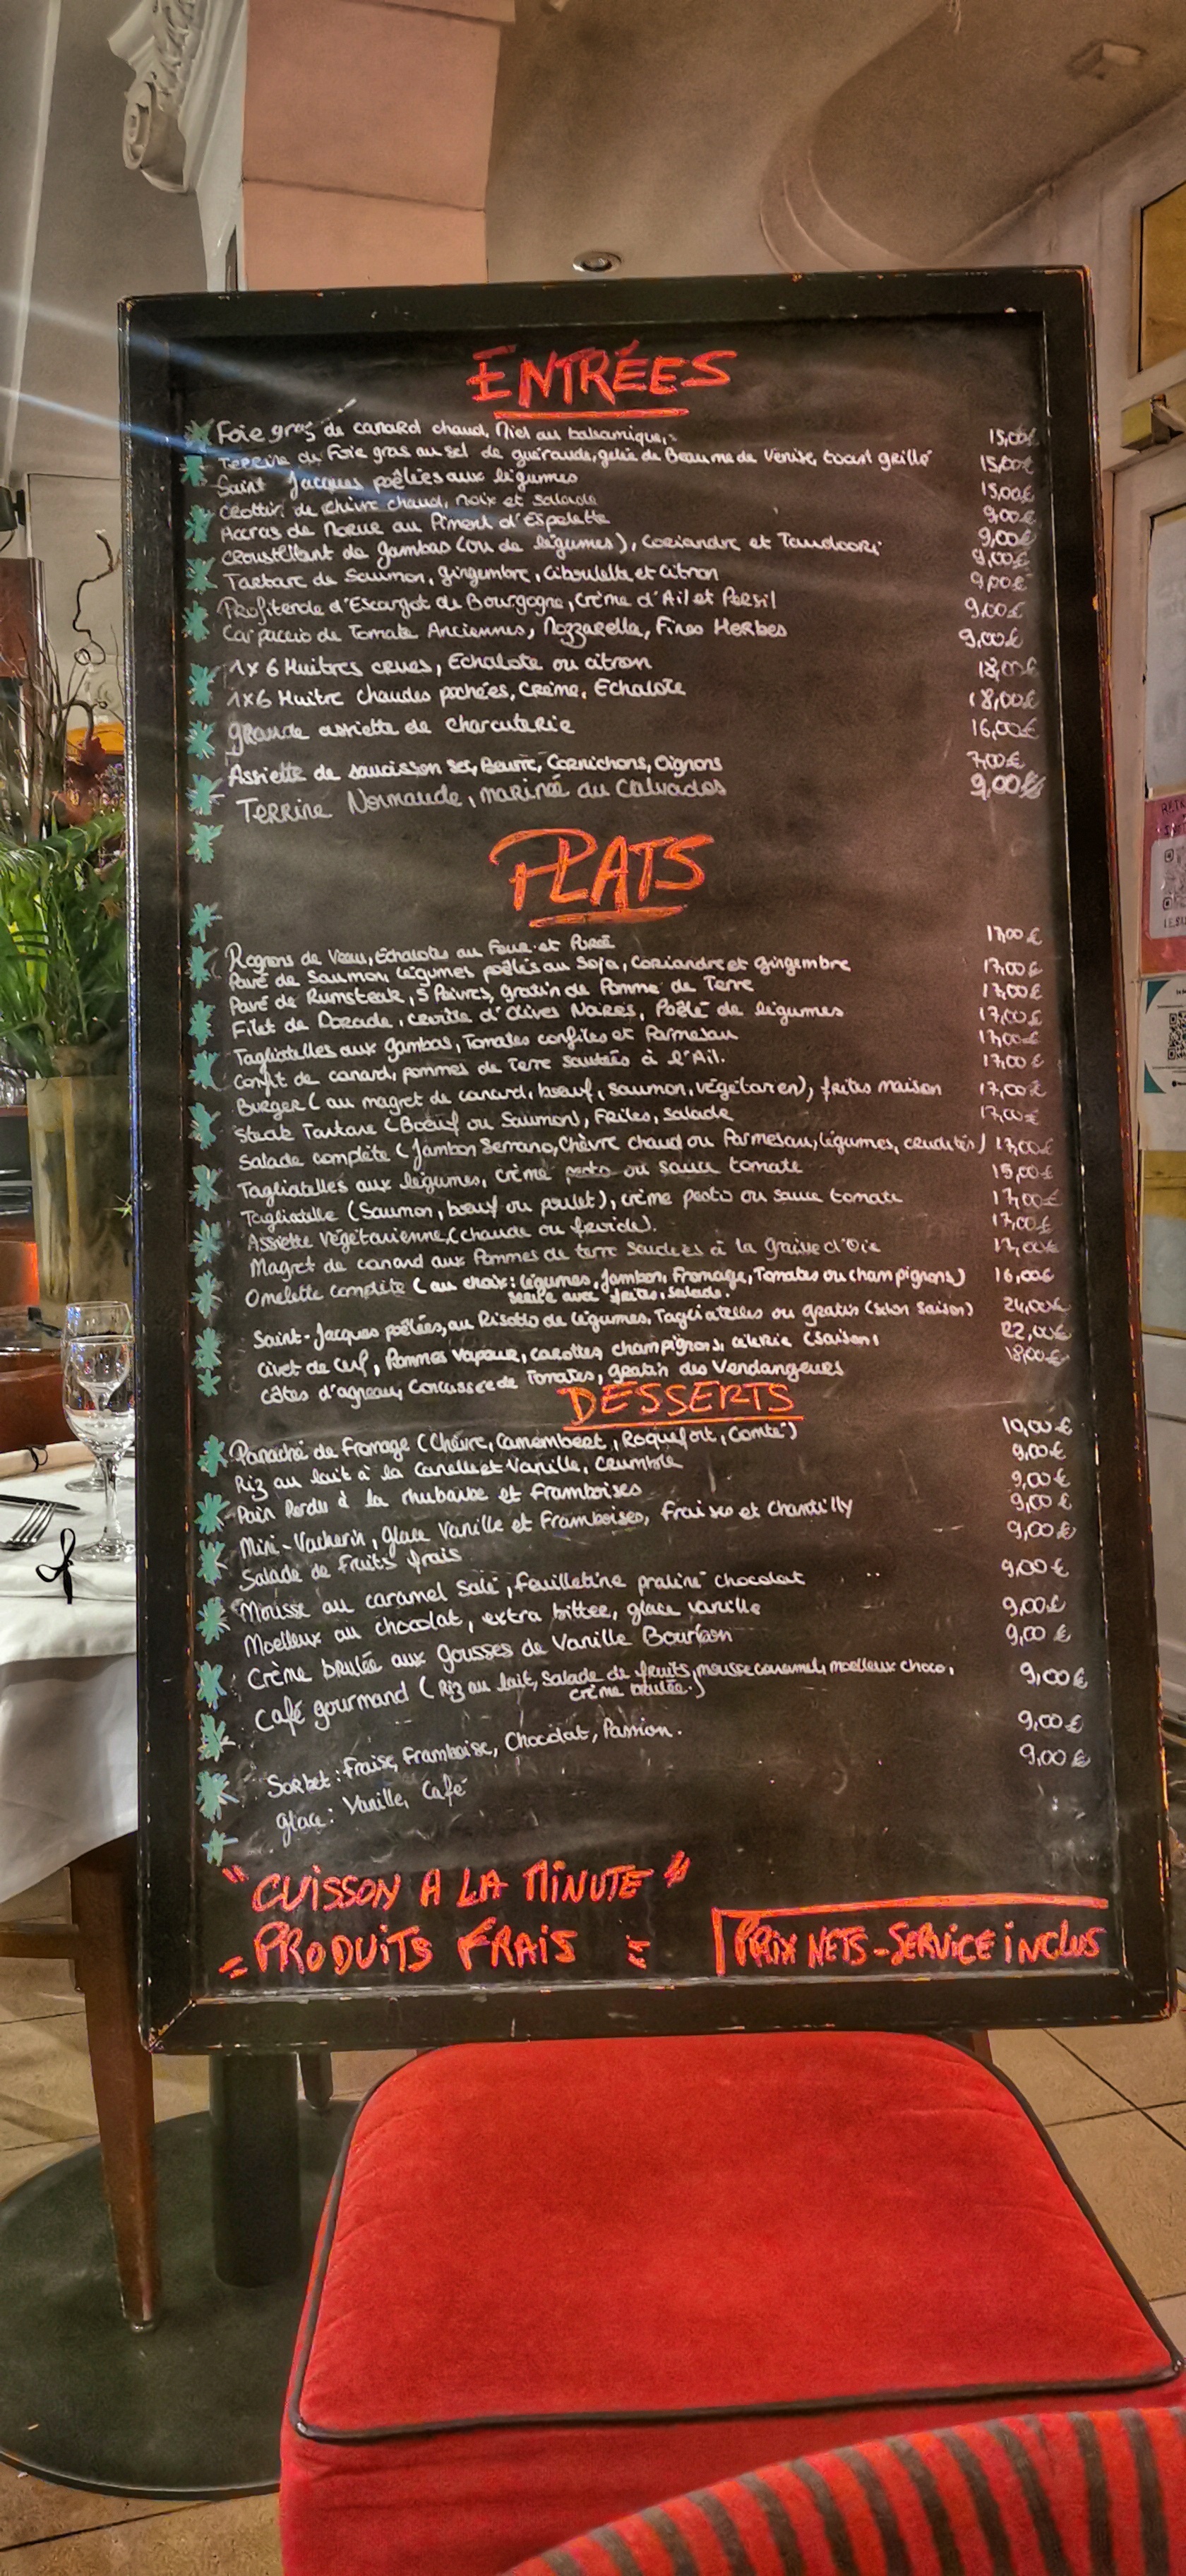 ENTRÉES
Foie gras de canard chaud, Miel au balsamique, 15,00€
Terrine de Foie gras au sel de guérande, gelée de Beaume de Venise, toast grillé 15,00€
Saint Jacques poêlées aux légumes 15,00€
Crottin de chèvre chaud, noix et salade 9,00€
Accras de Morue au Piment d'Espelette 9,00€
Croustillant de gambas (ou de légumes), coriandre et Tandoori 9,00€
Tartare de Saumon, gingembre, Ciboulette et Citron 9,00€
Profiterole d'Escargot de Bourgogne, Crème d'Ail et Persil 9,00€
Carpaccio de Tomate Anciennes, Mozzarella, Fines Herbes 9,00€
1x6 Huitres crues, Echalote ou citron 18,00€
1x6 Huitre chaudes pochées, Crème, Echalote 18,00€
Grande assiette de charcuterie 16,00€
Assiette de saucisson sec, Beurre, Cornichons, Oignons 7,00€
Terrine Normande, marinée au Calvados 9,00€
PLATS
Rognons de Veau, Echalotes au Four et Purée 17,00€
Pavé de Saumon, légumes poêlés au Soja, Coriandre et gingembre 17,00€
Pavé de Rumsteak, 5 Poivres, gratin de Pomme de Terre 17,00€
Filet de Dorade, d'Olives Noires, Poêlé de légumes 17,00€
Tagliatelles aux gambas, Tomates confites et Parmesan 17,00€
Confit de canard, pommes de Terre sautées à l'Ail. 17,00€
Burger (au magret de canard, boeuf, saumon, végétarien), frites maison 17,00€
Steak Tartare (Boeuf ou Saumon), Frites, salade 17,00€
Salade complète (Jambon Serrano, Chèvre chaud ou Parmesan, légumes, crudités) 17,00€
Tagliatelles aux légumes, crème pesto ou sauce tomate 15,00€
Tagliatelle (Saumon, boeuf ou poulet), crème pesto ou sauce tomate 17,00€
Assiette végétarienne (chaude ou froide). 17,00€
Magret de canard aux Pommes de terre sautées à la graisse d'Oie 17,00€
Omelette complète (au choix: légumes, Jambon, Fromage, Tomates ou champignons) 16,00€
servie avec frites, salade.
Saint-Jacques poêlées, au Risotto de légumes, Tagliatelles ou gratin (selon saison) 24,00€
Civet de cerf, Pommes Vapeur, carottes, champignons, célerie (saison) 22,00€
Côtes d'agneau, Concassée de Tomates, gratin des Vendangeurs 18,00€
DESSERTS
Panaché de fromage (Chèvre, Camembert, Roquefort, Comté) 10,00€
Riz au lait à la Canelle et Vanille, Crumble 9,00€
Pain Perdu à la rhubarbe et Framboises 9,00€
Mini-Vacherin, glace Vanille et Framboises, Fraises et Chantilly 9,00€
Salade de Fruits frais 9,00€
Mousse au caramel salé, feuilletine praliné chocolat 9,00€
Moelleux au chocolat, extra bitter, glace vanille 9,00€
Crème brulée aux gousses de Vanille Bourbon 9,00€
Café gourmand (Riz au lait, Salade de fruits, mousse caramel, moelleux choco, 9,00€
crème brulée.)
Sorbet: Fraise, Framboise, Chocolat, Passion. 9,00€
glace: Vanille, Café 9,00€
"CUISSON A LA MINUTE"
= PRODUITS FRAIS =
PRIX NETS - SERVICE INCLUS